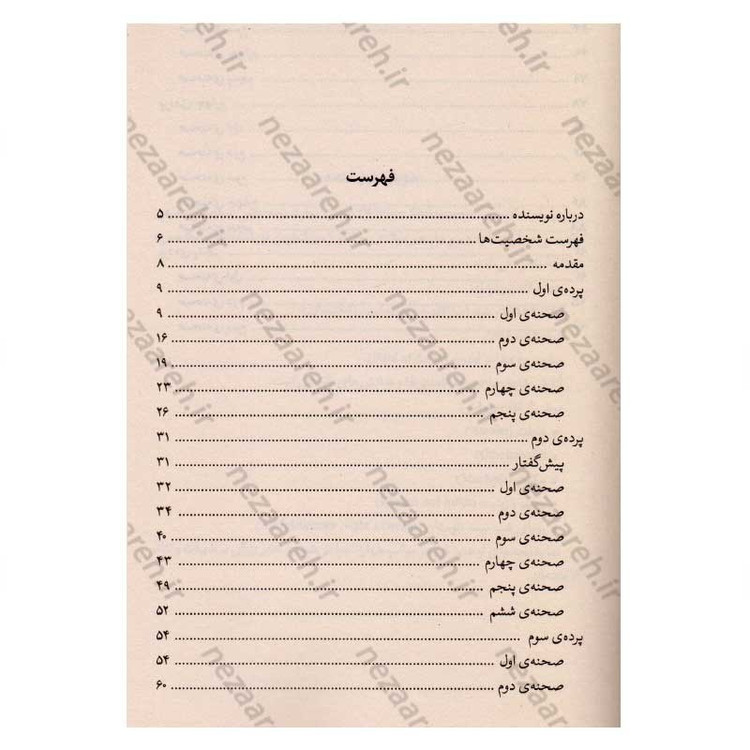 فهرست
درباره نویسنده ........ ۵
فهرست شخصیت‌ها ........ ۶
مقدمه ........ ۸
پرده‌ی اول ........ ۹
صحنه‌ی اول ........ ۹
صحنه‌ی دوم ........ ۱۶
صحنه‌ی سوم ........ ۱۹
صحنه‌ی چهارم ........ ۲۳
صحنه‌ی پنجم ........ ۲۶
پرده‌ی دوم ........ ۳۱
پیش‌گفتار ........ ۳۱
صحنه‌ی اول ........ ۳۲
صحنه‌ی دوم ........ ۳۴
صحنه‌ی سوم ........ ۴۰
صحنه‌ی چهارم ........ ۴۳
صحنه‌ی پنجم ........ ۴۹
صحنه‌ی ششم ........ ۵۲
پرده‌ی سوم ........ ۵۴
صحنه‌ی اول ........ ۵۴
صحنه‌ی دوم ........ ۶۰
nezaareh.ir